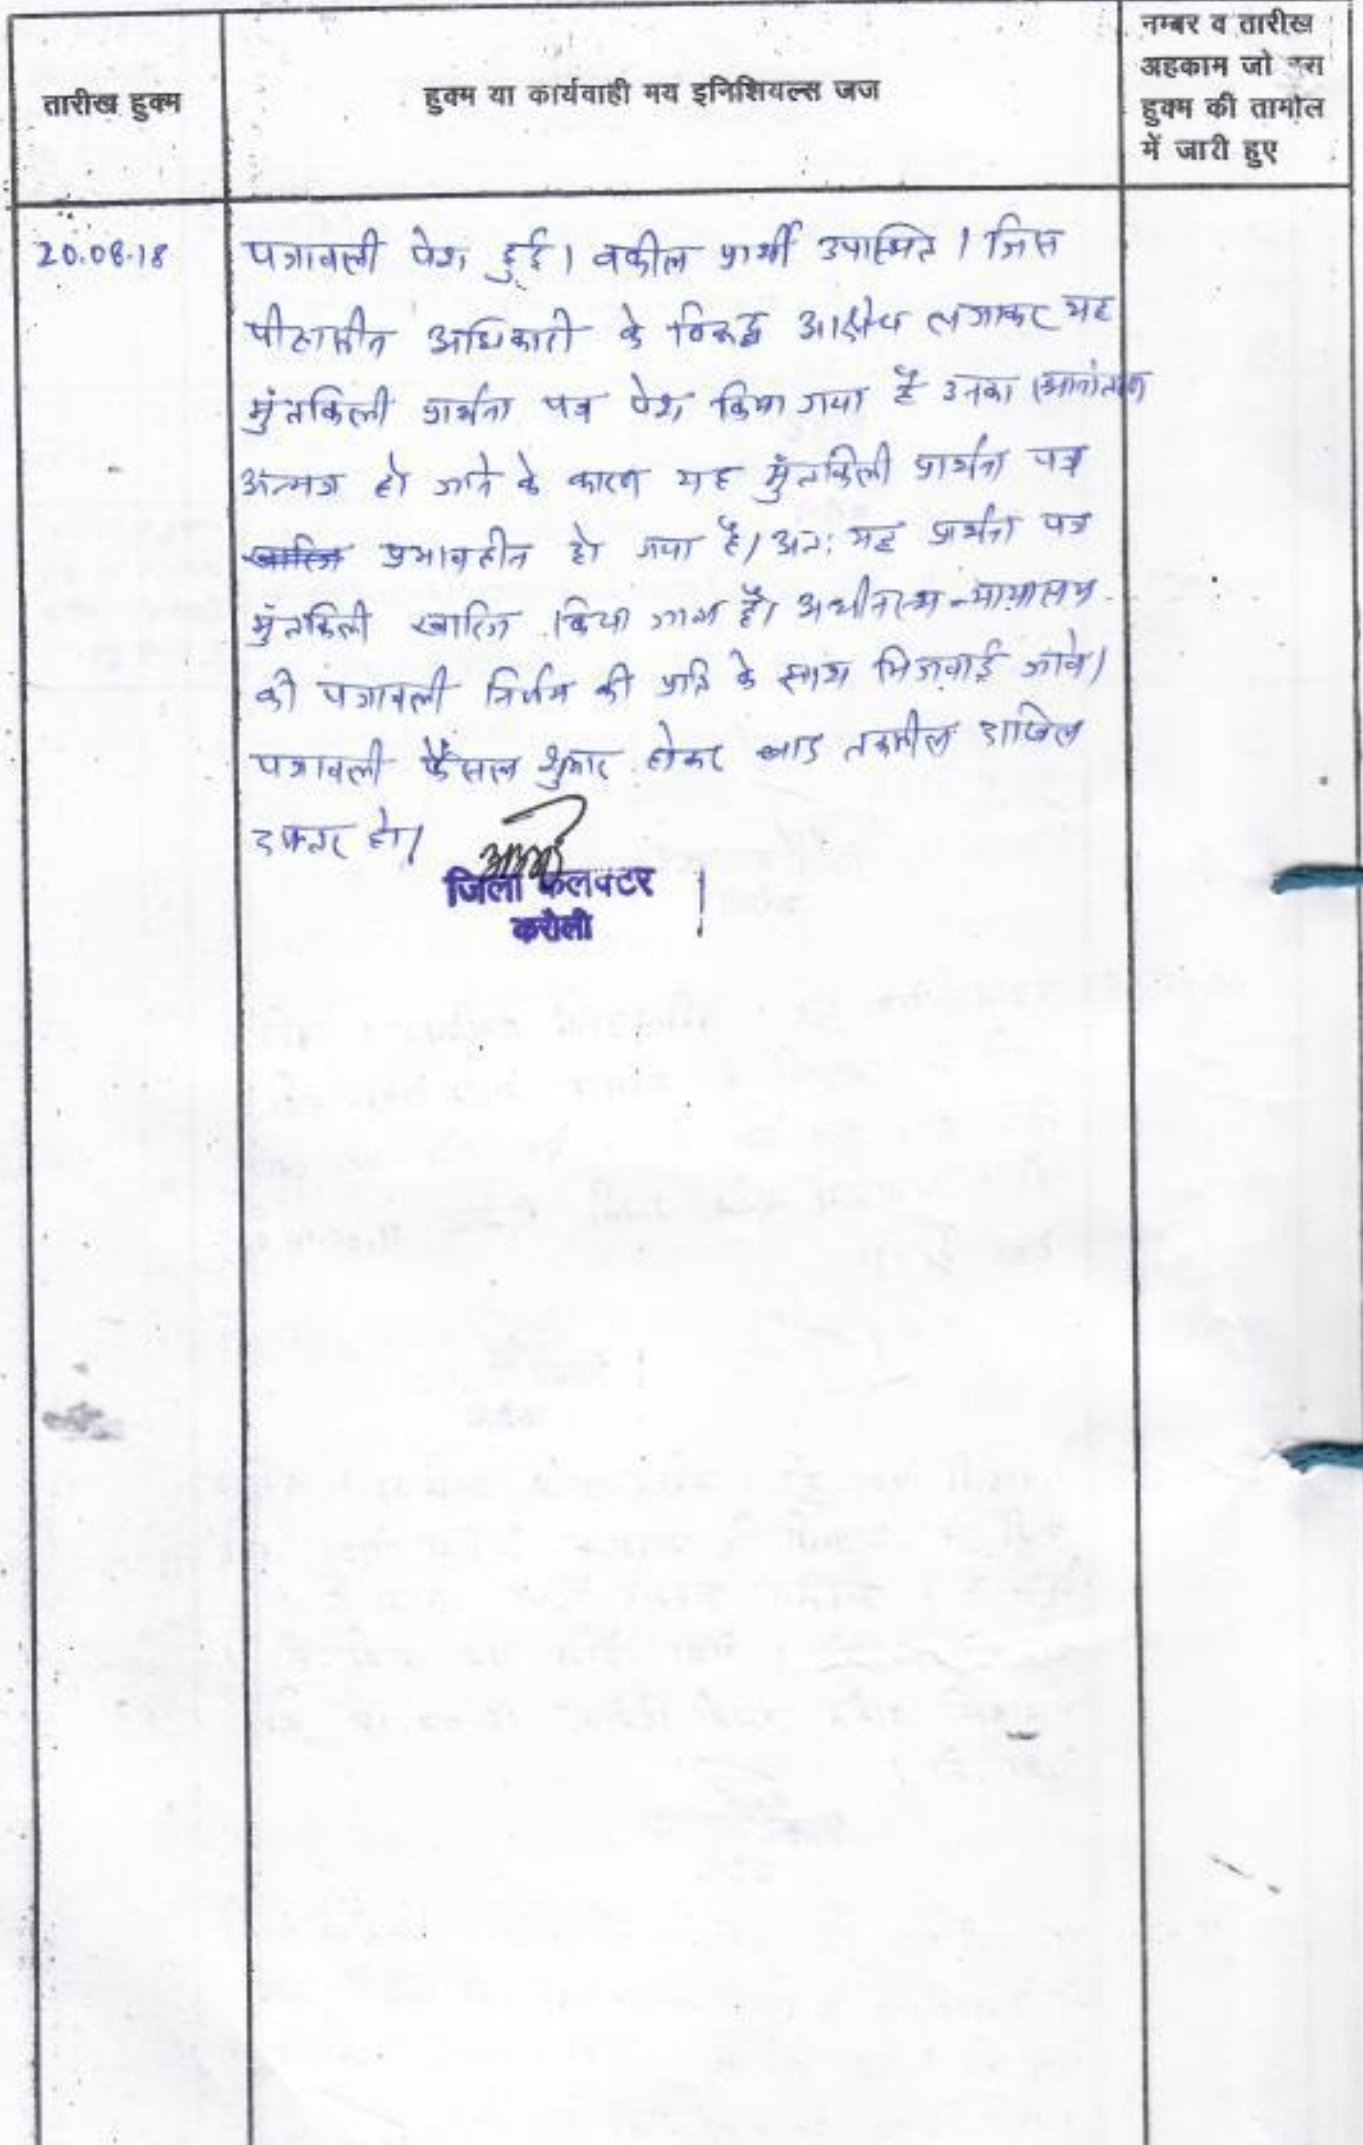 तारीख हुक्म
हुक्म या कार्यवाही मय इनिशियल्स जज
नम्बर व तारीख
अहकाम जो इस
हुक्म की तामील
में जारी हुए
20.08.18
पत्रावली पेश हुई। वकील प्रार्थी उपस्थित। जिस
पीठासीन अधिकारी के विरूद्ध आक्षेप लगाकर यह
मुंतकिली प्रार्थना पत्र पेश किया गया है उनका स्थानांतरण
अन्यत्र हो जाने के कारण यह मुंतकिली प्रार्थना पत्र
खारिज प्रभावहीन हो गया है। अत: यह प्रार्थना पत्र
मुंतकिली खारिज किया जाता है। अधीनस्थ न्यायालय
की पत्रावली निर्णय की प्रति के साथ भिजवाई जावे।
पत्रावली फैसल शुमार होकर बाद तकमील दाखिल
दफ्तर हो।
जिला कलक्टर
करौली